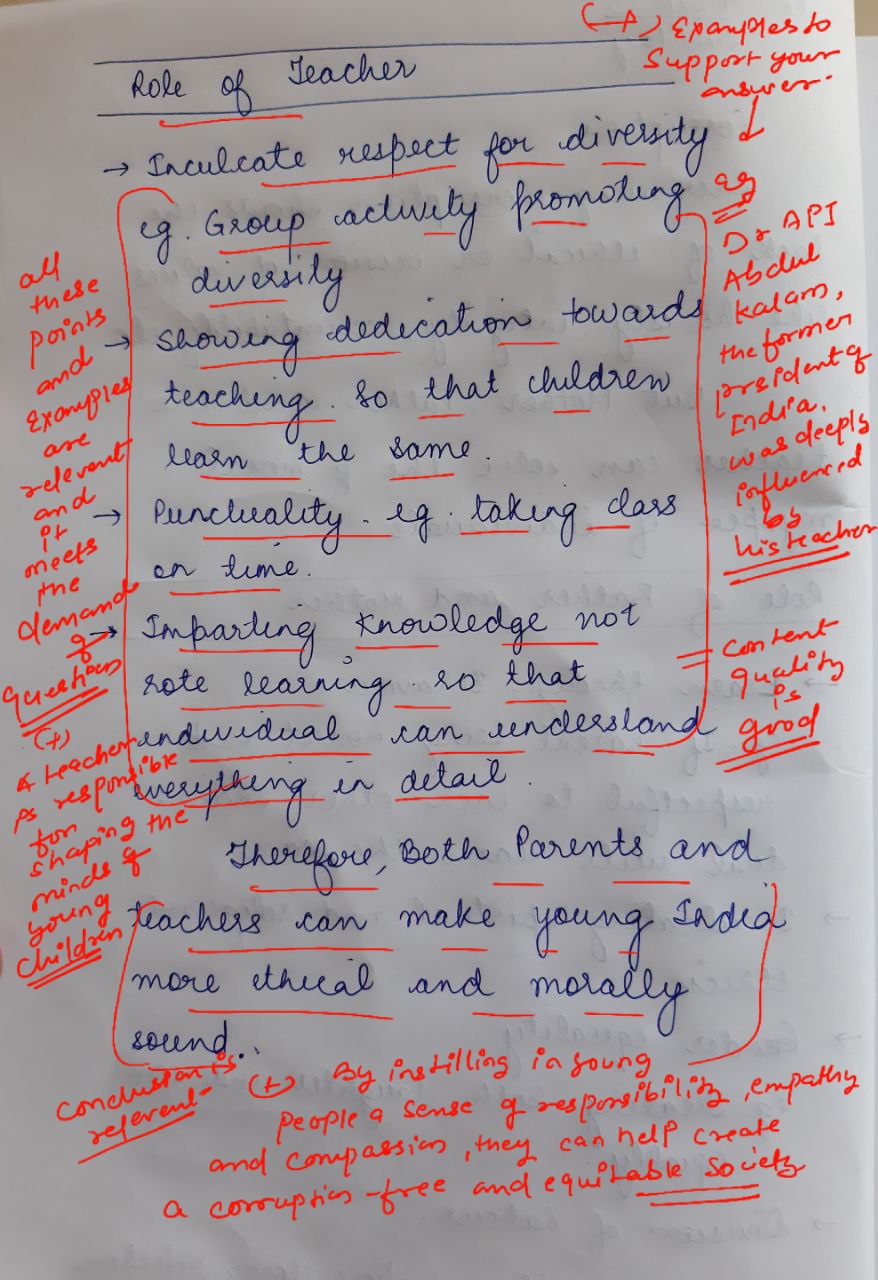 (+) Examples to
Support your
answer.
Role of Teacher
→ Inculcate respect for diversity
eg. Group activity promoting
diversity
→ Showing dedication towards
teaching. So that children
learn the same.
→ Punctuality. eg. taking class
on time.
→ Imparting knowledge not
rote learning so that
individual can understand
everything in detail.
Therefore, Both Parents and
teachers can make young India
more ethical and morally
sound.
all
these
points
and
Examples
are
relevant
and
it
meets
the
demand
of
questions
(+)
A teacher
is responsible
for
shaping the
minds of
young
children
eg
Dr API
Abdul
Kalam,
the former
president of
India,
was deeply
influenced
by
his teacher
Content
quality
is
good
Conclusion is
relevant
(+) By instilling in young
people a sense of responsibility, empathy
and compassion, they can help create
a corruption-free and equitable society